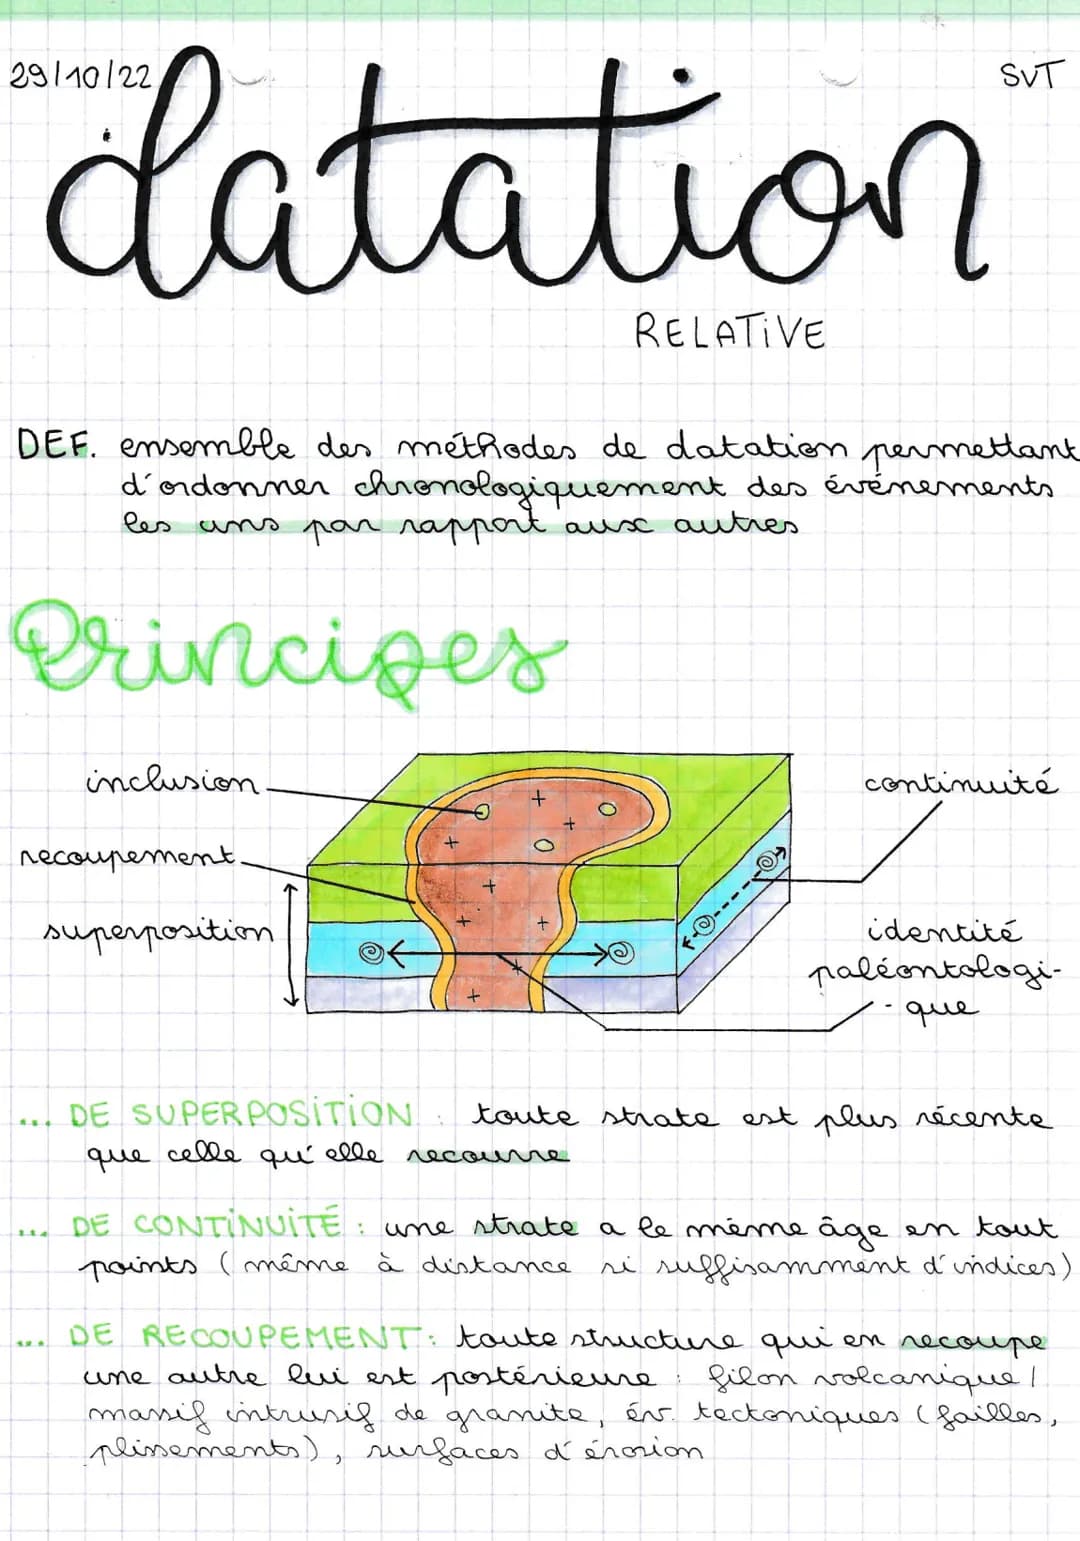 29/10/22
SVT
datation
RELATiVE
DEF. ensemble des méthodes de datation permettant
d'ordonner chronologiquement des événements
les uns par rapport aux autres
Principes
inclusion
continuité
recoupement
superposition
identité
paléontologi-
- que
... DE SUPERPOSiTiON : toute strate est plus récente
que celle qu'elle recouvre
... DE CONTiNUiTÉ : une strate a le même âge en tout
points (même à distance si suffisamment d'indices)
... DE RECOUPEMENT : toute structure qui en recoupe
une autre lui est postérieure : filon volcanique /
massif intrusif de granite, év. tectoniques (failles,
plissements), surfaces d'érosion